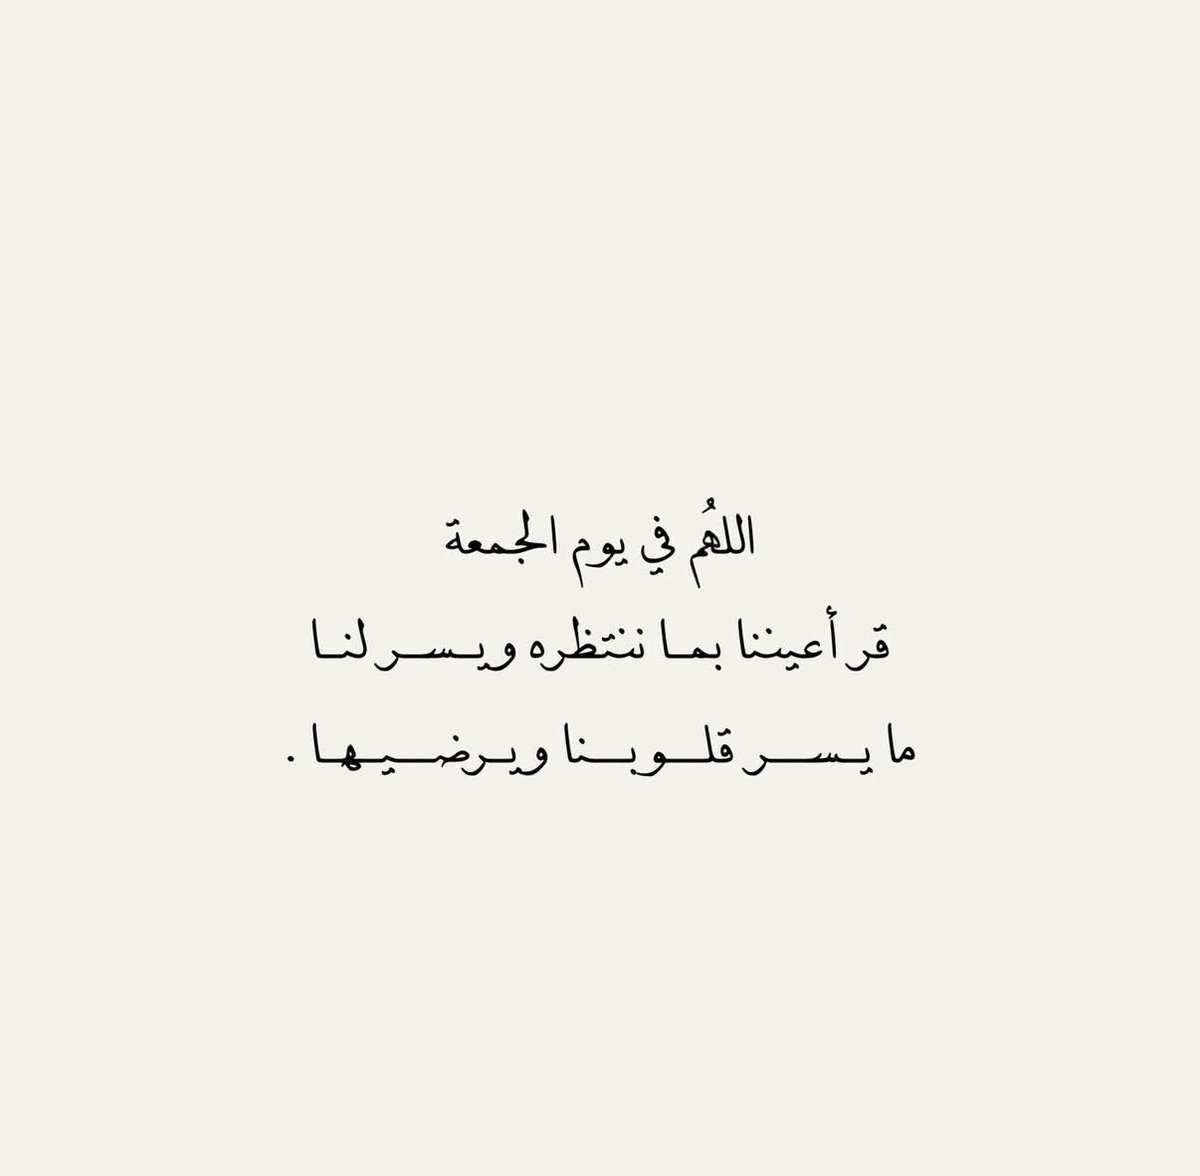 اللهُم في يوم الجمعة
قر أعيننا بمـا ننتظره ويـسـر لنـا
ما يـسـر قلـوبـنا ويـرضـيـهـا .